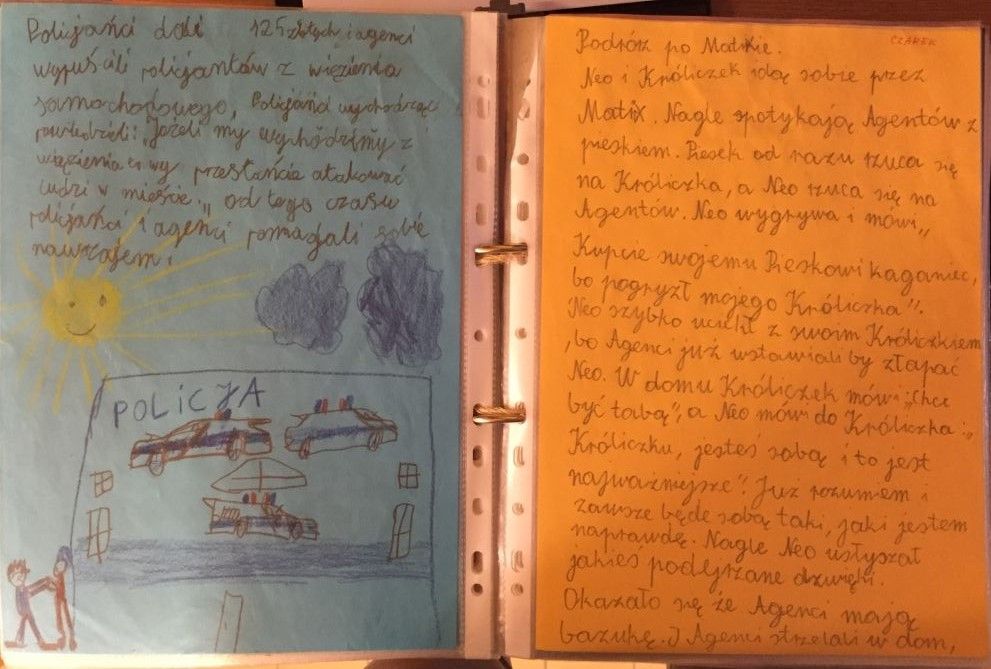 Policjanci dali 125 złotych i agenci
wypuścili policjantów z więzienia
samochodowego, Policjanci wychodząc
powiedzieli: "Jeżeli my wychodzimy z
więzienia to wy przestańcie atakować
ludzi w mieście„ od tego czasu
policjańci i agenci pomagali sobie
nawzajem.
POLICJA
CZAREK
Podróż po Matrixie.
Neo i Króliczek idą sobie przez
Matix. Nagle spotykają Agentów z
pieskiem. Piesek od razu rzuca się
na Króliczka, a Neo rzuca się na
Agentów. Neo wygrywa i mówi„
Kupcie swojemu Pieskowi kaganiec,
bo pogryzł mojego Króliczka".
Neo szybko uciekł z swoim Króliczkiem
, bo Agenci już wstawiali by złapać
Neo. W domu Króliczek mówi „Chce
być tabą", a Neo mówi do Króliczka:„
Króliczku, jesteś sobą i to jest
najważniejsze". Już rozumiem i
zawsze będe sobą taki, jaki jestem
naprawdę. Nagle Neo usłyszał
jakieś podejrzane dzwięki.
Okazało się że Agenci mają
bazukę. I Agenci strzelali w dom,